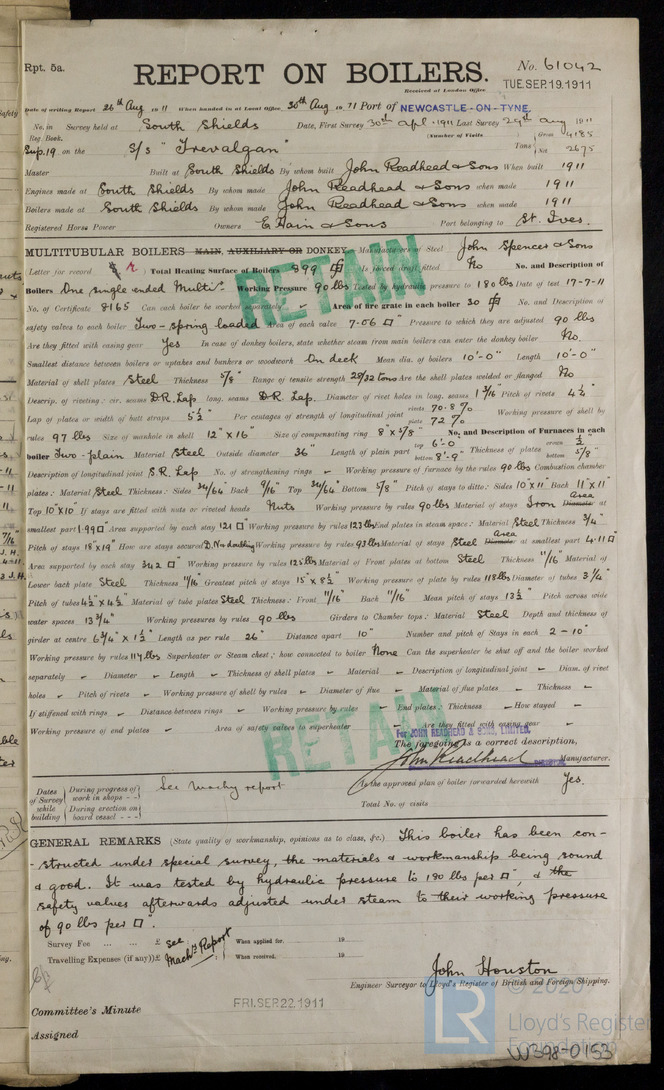 Rpt. 5a.
No. 61042
REPORT ON BOILERS.
Received at London Office
TUE. SEP. 19. 1911
Date of writing Report 26th Aug 1911 When handed in at Local Office 30th Aug 1911 Port of NEWCASTLE-ON-TYNE.
No. in Survey held at South Shields Date, First Survey 30th Apl. 1911 Last Survey 29th Aug 1911
Reg. Book. (Number of Visits Gross 4185
Sup. 19 on the S/S "Trevalgan" Tons Net 2675
Master Built at South Shields By whom built John Readhead & Sons When built 1911
Engines made at South Shields By whom made John Readhead & Sons when made 1911
Boilers made at South Shields By whom made John Readhead & Sons when made 1911
Registered Horse Power Owners E Hain & Sons Port belonging to St. Ives.
MULTITUBULAR BOILERS MAIN, AUXILIARY OR DONKEY. Manufacturers of Steel John Spencer & Sons
(Letter for record r) Total Heating Surface of Boilers 899 Is forced draft fitted No No. and Description of
Boilers One single ended Multi. Working Pressure 90 lbs Tested by hydraulic pressure to 180 lbs Date of test 17-7-11
No. of Certificate 8165 Can each boiler be worked separately Area of fire grate in each boiler 30 No. and Description of
safety valves to each boiler Two-spring loaded Area of each valve 7.06 □" Pressure to which they are adjusted 90 lbs
Are they fitted with easing gear Yes In case of donkey boilers, state whether steam from main boilers can enter the donkey boiler No.
Smallest distance between boilers or uptakes and bunkers or woodwork On deck Mean dia. of boilers 10'-0" Length 10'-0"
Material of shell plates Steel Thickness 5/8" Range of tensile strength 28/32 tons Are the shell plates welded or flanged No
Descrip. of riveting: cir. seams D.R. Lap long. seams D.R. Lap. Diameter of rivet holes in long. seams 1 3/16 Pitch of rivets 4 1/4"
Lap of plates or width of butt straps 5 1/2" Per centages of strength of longitudinal joint rivets 70.8 % plate 72 % Working pressure of shell by
rules 97 lbs Size of manhole in shell 12" x 16" Size of compensating ring 8" x 5/8" No. and Description of Furnaces in each
boiler Two-plain Material Steel Outside diameter 36" Length of plain part top 6'-0" bottom 8'-9" Thickness of plates crown 1/2" bottom 5/8"
Description of longitudinal joint S.R. Lap No. of strengthening rings - Working pressure of furnace by the rules 90 lbs Combustion chamber
plates: Material Steel Thickness: Sides 34/64" Back 9/16" Top 34/64" Bottom 5/8" Pitch of stays to ditto: Sides 10" x 11" Back 11" x 11"
Top 10" x 10 If stays are fitted with nuts or riveted heads Nuts Working pressure by rules 90 lbs Material of stays Iron Area Diameter at
smallest part 1.99 □" Area supported by each stay 121 □" Working pressure by rules 123 lbs End plates in steam space: Material Steel Thickness 3/4"
Pitch of stays 18" x 19" How are stays secured D. Nuts doubling Working pressure by rules 93 lbs Material of stays Steel Area Diameter at smallest part 4.11 □"
Area supported by each stay 342 □" Working pressure by rules 125 lbs Material of Front plates at bottom Steel Thickness 11/16" Material of
Lower back plate Steel Thickness 11/16" Greatest pitch of stays 15" x 8 1/2" Working pressure of plate by rules 118 lbs Diameter of tubes 3 1/4"
Pitch of tubes 4 1/2" x 4 1/2" Material of tube plates Steel Thickness: Front 11/16" Back 11/16" Mean pitch of stays 13 1/2" Pitch across wide
water spaces 13 3/4" Working pressures by rules 90 lbs Girders to Chamber tops: Material Steel Depth and thickness of
girder at centre 6 3/4" x 1 1/2" Length as per rule 26" Distance apart 10" Number and pitch of Stays in each 2 - 10"
Working pressure by rules 114 lbs Superheater or Steam chest; how connected to boiler None Can the superheater be shut off and the boiler worked
separately - Diameter - Length - Thickness of shell plates - Material - Description of longitudinal joint - Diam. of rivet
holes - Pitch of rivets - Working pressure of shell by rules - Diameter of flue - Material of flue plates - Thickness -
If stiffened with rings - Distance between rings - Working pressure by rules - End plates: Thickness - How stayed -
Working pressure of end plates - Area of safety valves to superheater - Are they fitted with easing gear -
RETAIN
RETAIN
For JOHN READHEAD & SONS, LIMITED.
The foregoing is a correct description,
John Readhead Manufacturer.
Dates of Survey while building
During progress of work in shops - -
During erection on board vessel - - -
See Machy report
Is the approved plan of boiler forwarded herewith Yes.
Total No. of visits
GENERAL REMARKS (State quality of workmanship, opinions as to class, &c.) This boiler has been con-
-structed under special survey, the materials & workmanship being sound
& good. It was tested by hydraulic pressure to 180 lbs per □", & the
safety valves afterwards adjusted under steam to their working pressure
of 90 lbs per □".
Survey Fee ... ... £ see When applied for, 19
Travelling Expenses (if any) £ Machy Report When received, 19
John Houston
Engineer Surveyor to Lloyd's Register of British and Foreign Shipping.
Committee's Minute FRI. SEP. 22. 1911
Assigned
© 2020
LR
Lloyd's Register
Foundation
W398-0153